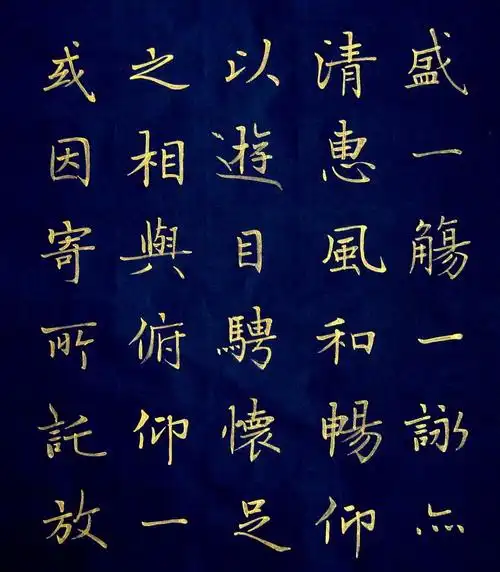 盛一觴一詠灬
清惠風和暢仰
以遊目騁懷足
之相與俯仰一
或因寄所託放